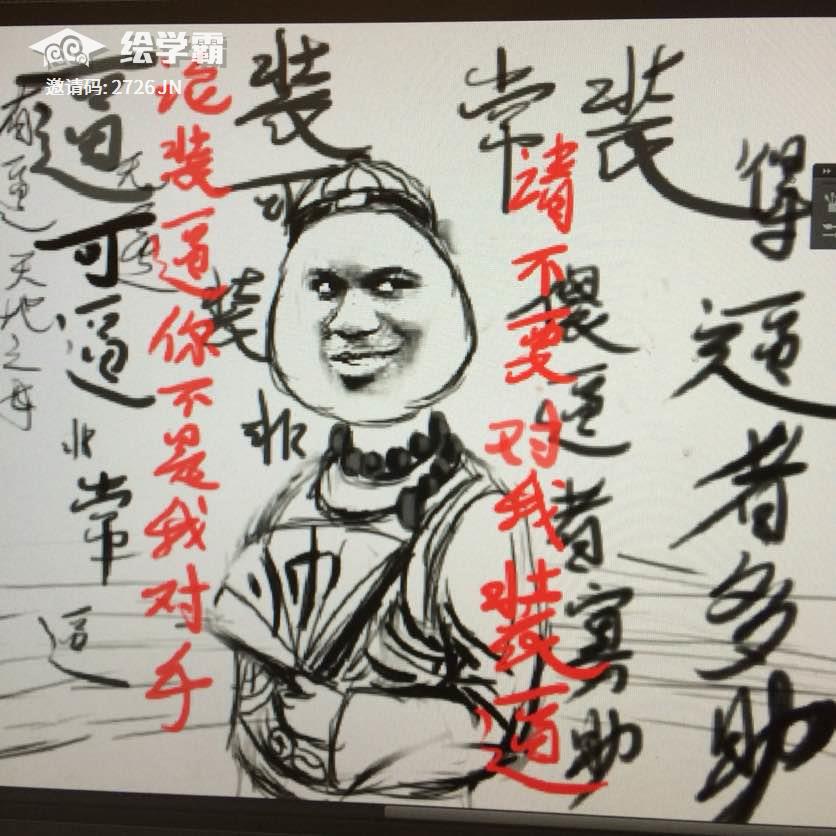 绘学霸
邀请码: 2726JN
得逼者多助
逼者寡助
请不要对我装逼
装可装非
常装
帅
论装逼你不是我对手
逼可逼非常逼
有逼天地之母